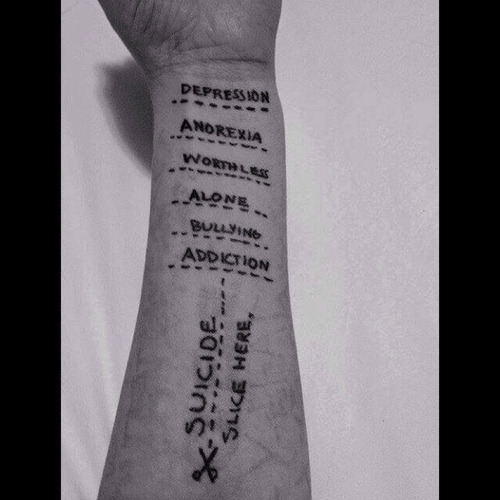 DEPRESSION
ANOREXIA
WORTHLESS
ALONE
BULLYING
ADDICTION
SUICIDE
SLICE HERE,